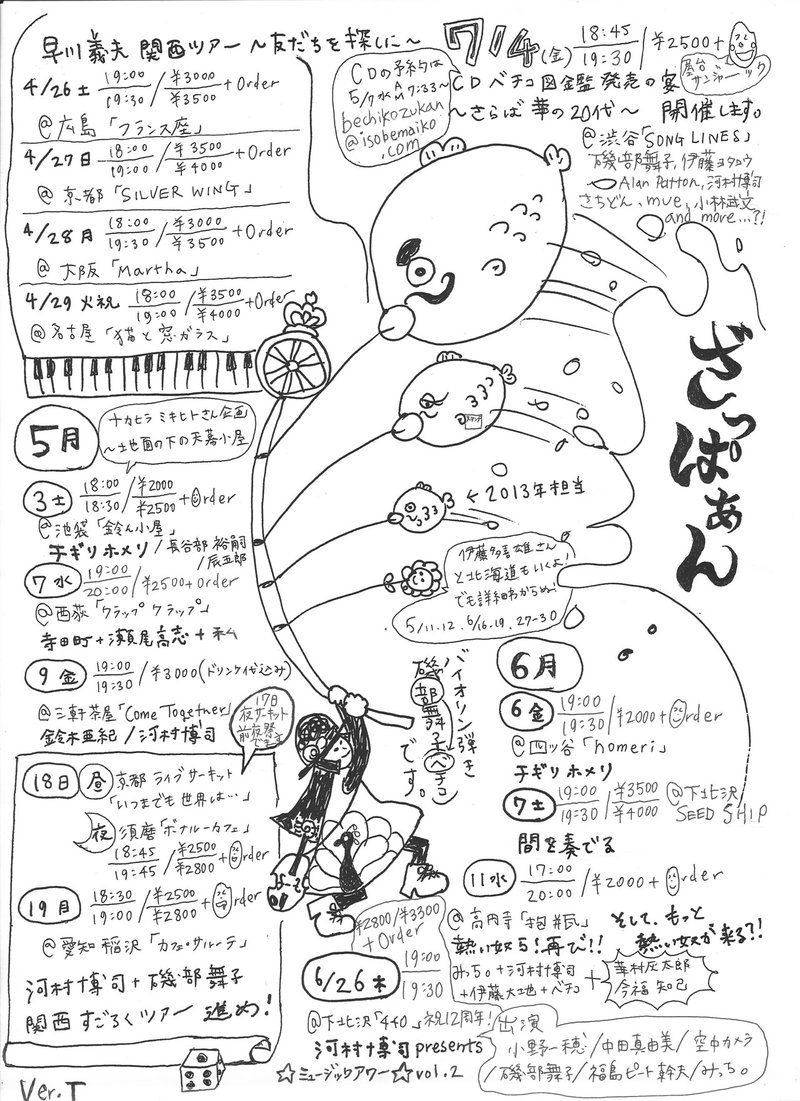 早川義夫 関西ツアー 〜友だちを探しに〜
4/26土 19:00/19:30 / ¥3000/¥3500 +Order
@広島「フランス座」
4/27日 18:00/19:00 / ¥3500/¥4000 +Order
@京都「SILVER WING」
4/28月 18:00/19:30 / ¥3000/¥3500 +Order
@大阪「Martha」
4/29火祝 18:00/19:00 / ¥3500/¥4000 +Order
@名古屋「猫と窓ガラス」
7/4(金) 18:45/19:30 / ¥2500+
屋台
サンジャーック
CDの予約は
5/7水 AM 7:33〜
bechikozukan
@isobemaiko
.com
CDベチコ図鑑発売の宴
〜さらば華の20代〜 開催します。
@渋谷「SONG LINES」
磯部舞子,伊藤ヨタロウ
Alan Patton,河村博司
さちどん、mue,小林武文
and more...?!
ざっぱぁん
5月
ナカヒラミキヒトさん企画
〜土地面の下の天幕小屋
3土 18:00/18:30 / ¥2000/¥2500 +Order
@池袋「鈴ん小屋」
チギリホメリ/長谷部裕嗣
/辰五郎
7水 19:00/20:00 / ¥2500+Order
@西荻「クラップクラップ」
寺田町+瀬尾高志+私
9金 19:00/19:30 / ¥3000(ドリンク代込み)
@三軒茶屋「Come Together」
鈴木亜紀/河村博司
17日
夜サーキット
前夜祭
です
18日 昼 京都ライブサーキット
「いつまでも世界は…」
夜 須磨「ボナルーカフェ」
18:45/19:45 / ¥2500/¥2800 +Order
19月 18:30/19:00 / ¥2500/¥2800 +Order
@愛知 稲沢「カフェ・サルーテ」
河村博司+磯部舞子
関西すごろくツアー 進め!
Ver.T
←2013年担当
伊藤多喜雄さん
と北海道もいくよ!
でも詳細わからぬ!
5/11.12. 6/16.19. 27-30
バイオリン弾き
磯部舞子(ベチコ)
です。
6月
6金 19:00/19:30 / ¥2000+Order
@四ッ谷「homeri」
チギリホメリ
7土 19:00/19:30 / ¥3500/¥4000 @下北沢
SEED SHIP
間を奏でる
11水 17:00/20:00 / ¥2000+Order
@高円寺「抱瓶」
熱い奴ら!再び!!
そして、もっと
熱い奴が来る?!
みち。+河村博司
+伊藤大地+ベチコ
+
華村灰太郎
今福知己
¥2800/¥3300
+Order
6/26木 19:00/19:30
@下北沢「440」祝12周年!
河村博司 presents
☆ミュージックアワー☆ vol.2
出演
小野一穂/中田真由美/空中カメラ
/磯部舞子/福島ピート幹夫/みっち。